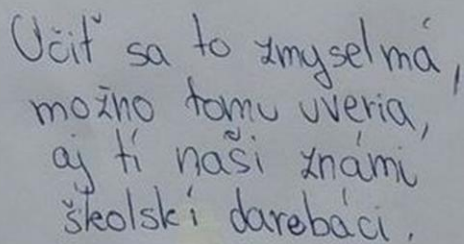 Učiť sa to zmysel má,
možno tomu uveria,
aj tí naši známi
školskí darebáci.